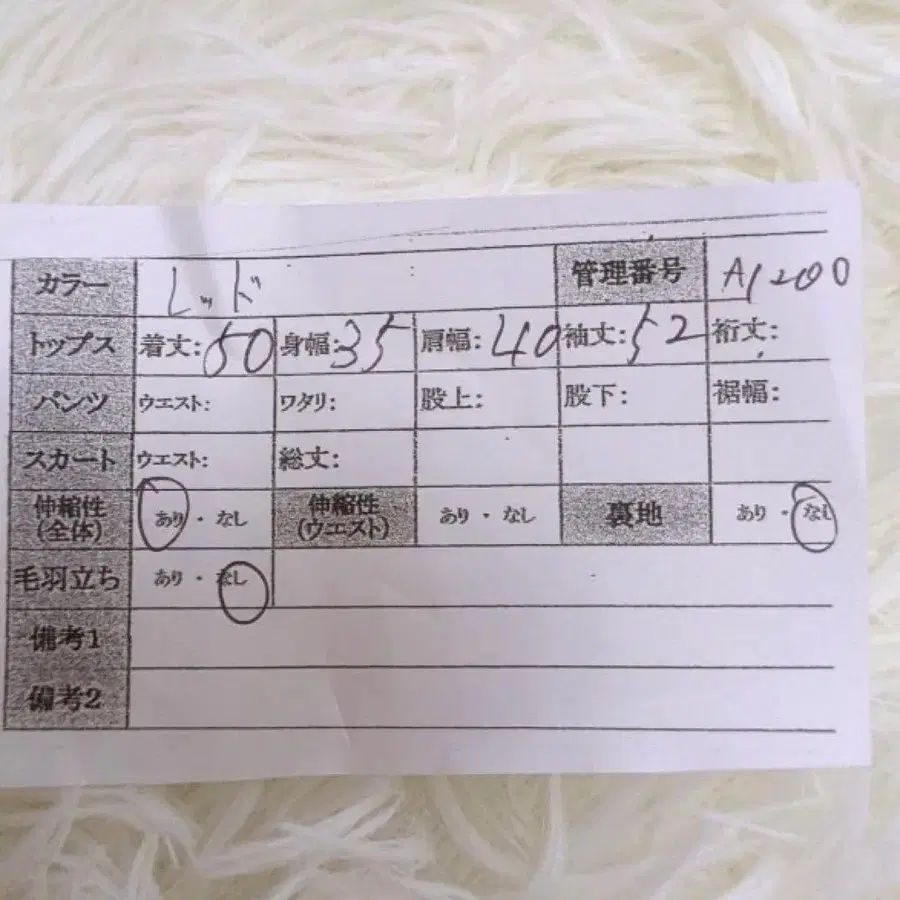 カラー レッド 管理番号 A1200
トップス 着丈:50 身幅:35 肩幅:40 袖丈:52 裄丈:
パンツ ウエスト: ワタリ: 股上: 股下: 裾幅:
スカート ウエスト: 総丈:
伸縮性(全体) あり・なし 伸縮性(ウエスト) あり・なし 裏地 あり・なし
毛羽立ち あり・なし
備考1
備考2